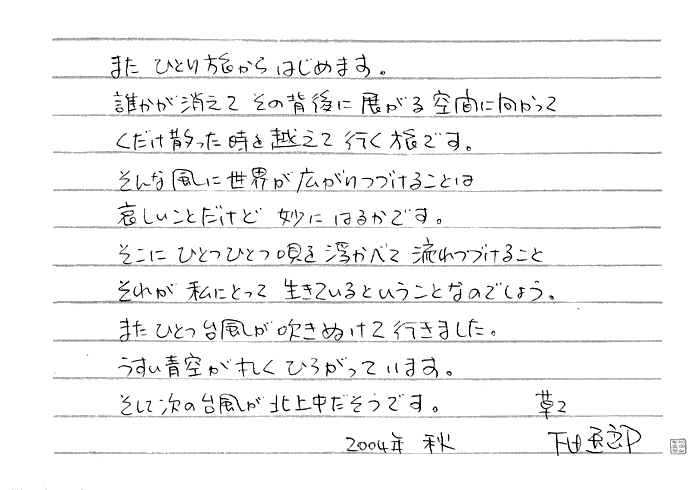 また ひとり旅からはじめます。
誰かが消えて その背後に 展がる空間に向かって
くだけ散った時を越えて行く旅です。
そんな風に世界が広がりつづけることは
哀しいことだけど 妙にはるかです。
そこに ひとつひとつ唄を浮かべて 流れつづけること
それが 私にとって 生きているということなのでしょう。
またひとつ台風が吹きぬけて行きました。
うすい青空が れくひろがっています。
そして次の台風が北上中だそうです。
草々
2004年 秋 下田逸郎